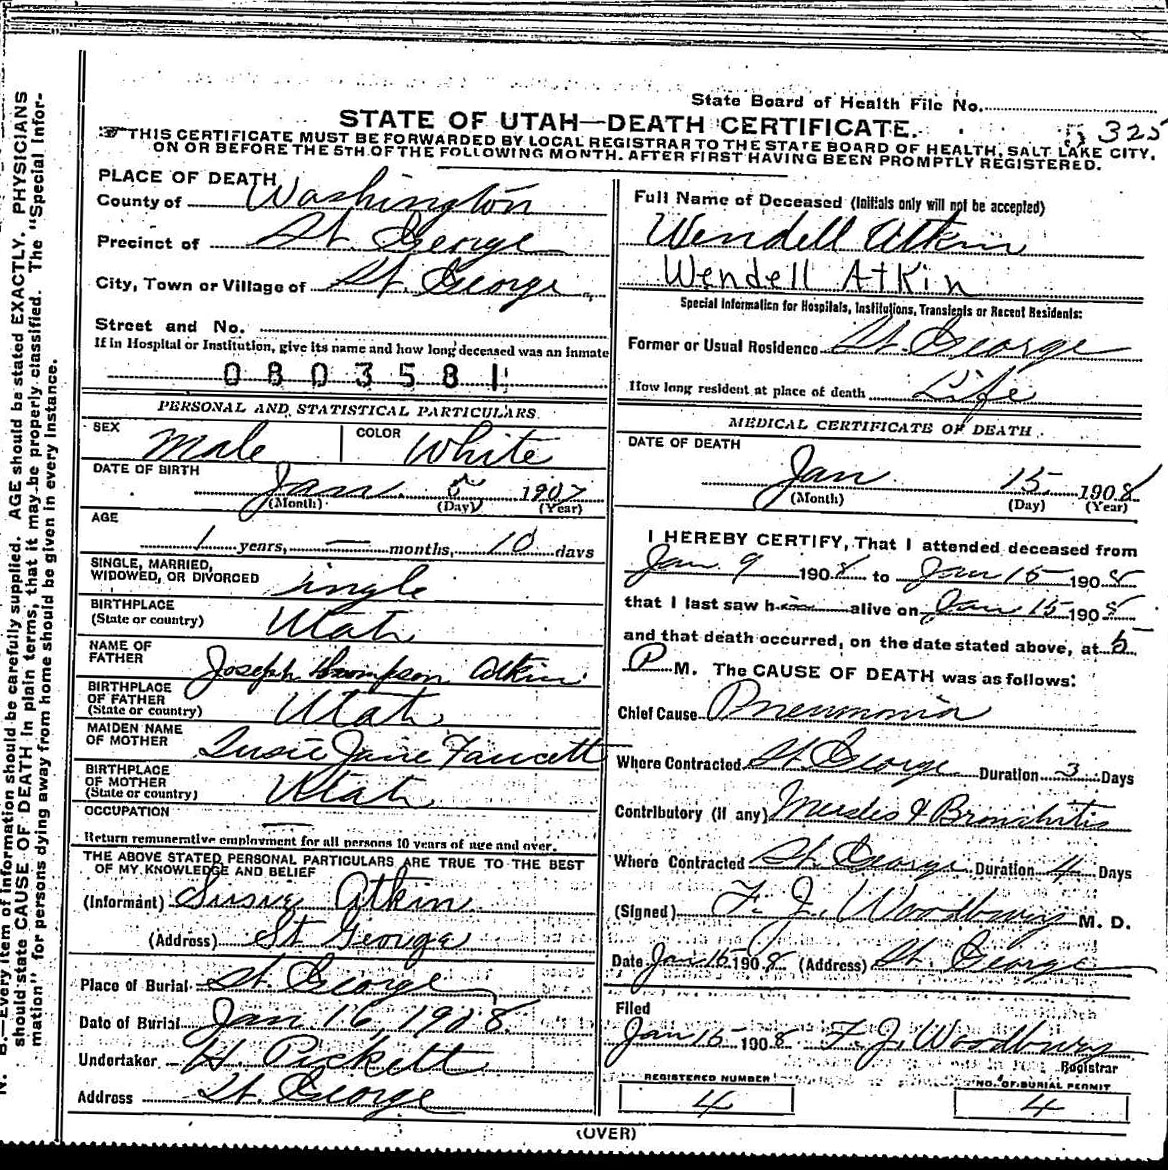 State Board of Health File No.
STATE OF UTAH—DEATH CERTIFICATE.
5 325
THIS CERTIFICATE MUST BE FORWARDED BY LOCAL REGISTRAR TO THE STATE BOARD OF HEALTH, SALT LAKE CITY,
ON OR BEFORE THE 5TH OF THE FOLLOWING MONTH, AFTER FIRST HAVING BEEN PROMPTLY REGISTERED.
PLACE OF DEATH
County of Washington
Precinct of St. George
City, Town or Village of St. George
Street and No.
If in Hospital or Institution, give its name and how long deceased was an inmate
0803581
PERSONAL AND STATISTICAL PARTICULARS
SEX Male COLOR White
DATE OF BIRTH
Jan. 5 1907
(Month) (Day) (Year)
AGE
1 years, — months, 10 days
SINGLE, MARRIED,
WIDOWED, OR DIVORCED single
BIRTHPLACE
(State or country) Utah
NAME OF
FATHER Joseph Thompson Atkin
BIRTHPLACE
OF FATHER
(State or country) Utah
MAIDEN NAME
OF MOTHER Susie Jane Fawcett
BIRTHPLACE
OF MOTHER
(State or country) Utah
OCCUPATION —
Return remunerative employment for all persons 10 years of age and over.
THE ABOVE STATED PERSONAL PARTICULARS ARE TRUE TO THE BEST
OF MY KNOWLEDGE AND BELIEF
(Informant) Susie Atkin
(Address) St George
Place of Burial St. George
Date of Burial Jan 16, 1908
Undertaker H. Pickett
Address St. George
Full Name of Deceased (Initials only will not be accepted)
Wendell Atkin
Wendell Atkin
Special Information for Hospitals, Institutions, Transients or Recent Residents:
Former or Usual Residence St. George
How long resident at place of death Life
MEDICAL CERTIFICATE OF DEATH
DATE OF DEATH
Jan 15 1908
(Month) (Day) (Year)
I HEREBY CERTIFY, That I attended deceased from
Jan 9 1908 to Jan 15 1908
that I last saw him alive on Jan 15 1908
and that death occurred, on the date stated above, at 5
P M. The CAUSE OF DEATH was as follows:
Chief Cause Pneumonia
Where Contracted St. George Duration 3 Days
Contributory (if any) Measles & Bronchitis
Where Contracted St. George Duration 4 Days
(Signed) F. J. Woodbury M. D.
Date Jan 15 1908 (Address) St. George
Filed
Jan 15 1908 F. J. Woodbury
Registrar
REGISTERED NUMBER
4
NO. OF BURIAL PERMIT
4
(OVER)
N. B.—Every item of information should be carefully supplied. AGE should be stated EXACTLY. PHYSICIANS
should state CAUSE OF DEATH in plain terms, that it may be properly classified. The "Special Infor-
mation" for persons dying away from home should be given in every instance.